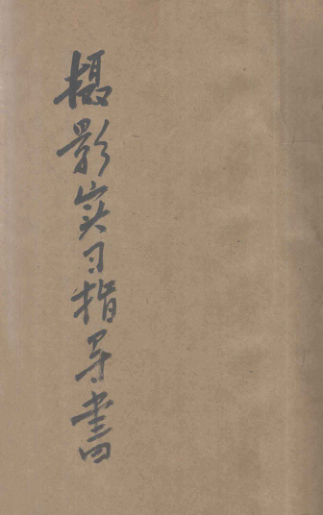 摄影实习指导书四